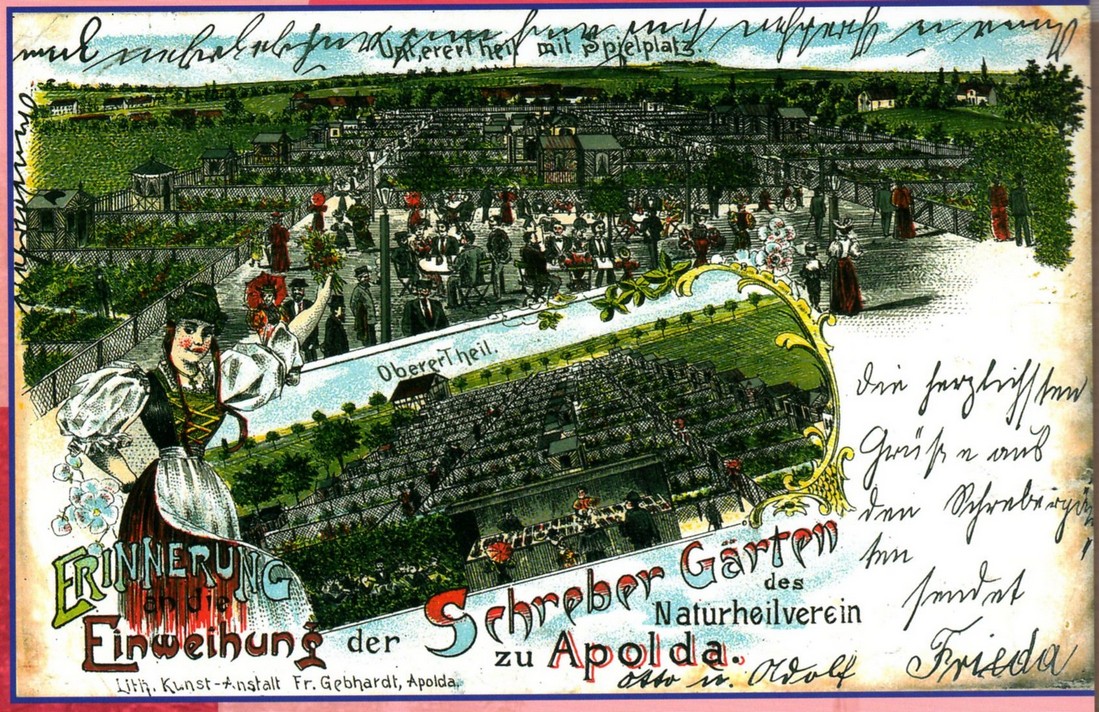 Unterer Theil mit Spielplatz.
Oberer Theil.
die herzlichsten
Grüße aus
den Schrebergär
ten
sendet
Frieda
Otto u. Adolf
ERINNERUNG
an die
Einweihung der Schreber Gärten
des
Naturheilverein
zu Apolda.
Lith. Kunst-Anstalt Fr. Gebhardt, Apolda.